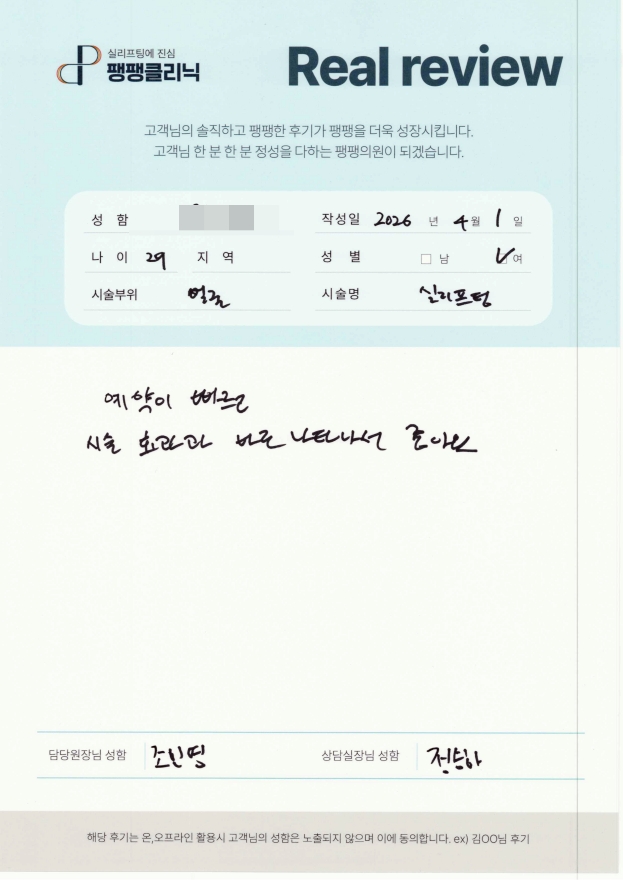 실리프팅에 진심
팽팽클리닉
Real review
고객님의 솔직하고 팽팽한 후기가 팽팽을 더욱 성장시킵니다.
고객님 한 분 한 분 정성을 다하는 팽팽의원이 되겠습니다.
성 함
작성일 2026 년 4 월 1 일
나 이 29 지 역
성 별 남 여
시술부위 얼굴
시술명 실리프팅
예약이 빠르고
시술 효과과 바로 나타나서 좋아요
담당원장님 성함 조인영
상담실장님 성함
해당 후기는 온,오프라인 활용시 고객님의 성함은 노출되지 않으며 이에 동의합니다. ex) 김OO님 후기